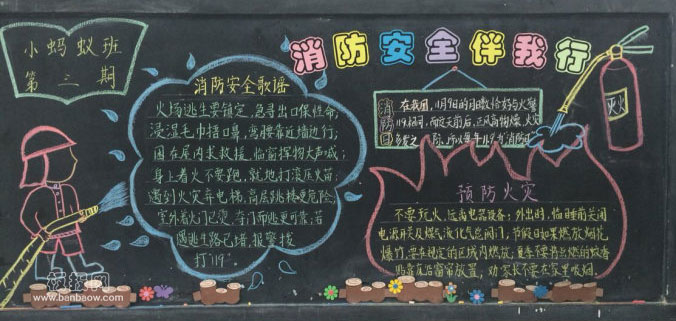 小蚂蚁班
第 三 期
消防安全伴我行
消防安全歌谣
火场逃生要镇定,急寻出口保性命;
浸湿毛巾捂口鼻,弯腰靠近墙边行;
困在屋内求救援,临窗挥物大声喊;
身上着火不要跑,就地打滚压火苗;
遇到火灾弃电梯,高层跳楼更危险;
室外着火门已烫,夺门而逃更可靠;若
遇逃生路已堵,报警拨
打"119".
消防日
在我国,11月9日的月日数恰好与火警
119相同,而这天前后,正风高物燥,火灾
灭火
预防火灾
不要玩火,远离电器设备;外出时、临睡前关闭
电源开关及煤气液化气总阀门;节假日如果燃放烟花
爆竹,要在规定的区域内燃放;夏季不要将点燃的蚊香
贴靠在沿窗帘放置,劝家长不要在家里吸烟.
板报网
www.banbaow.com